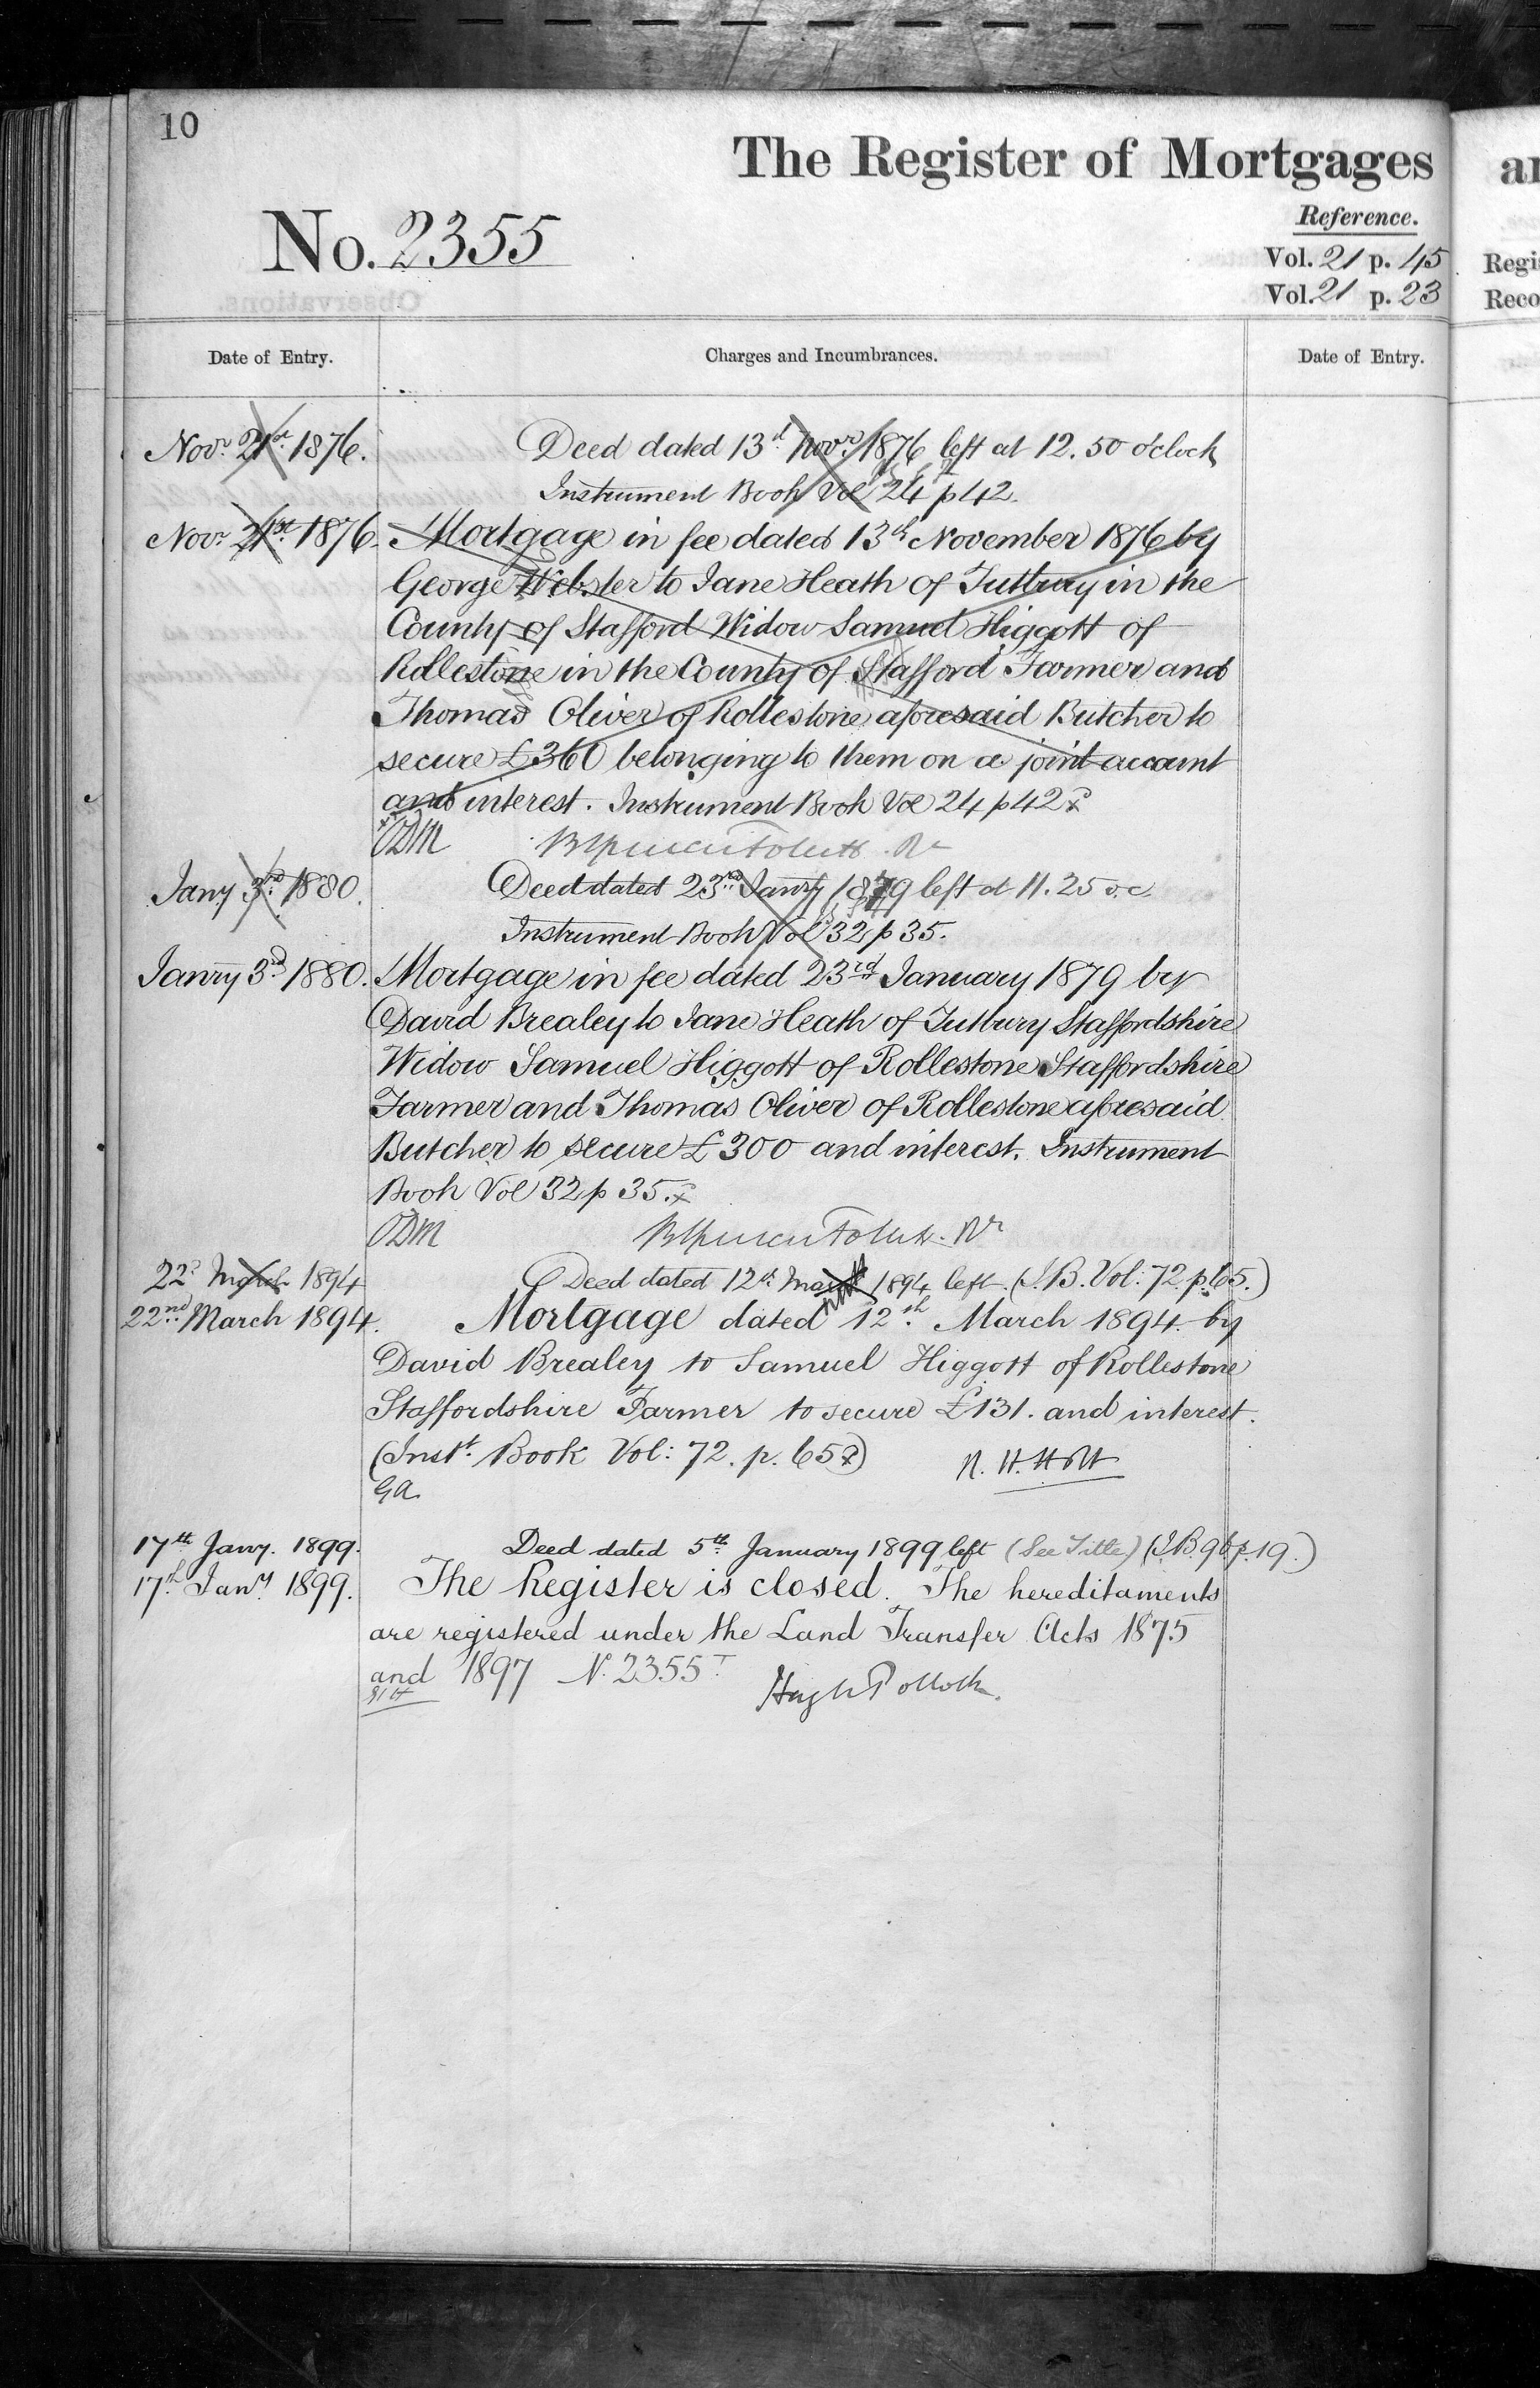 10
The Register of Mortgages
Reference.
No. 2355
Vol. 21 p. 45
Vol. 21 p. 23
Regi
Reco
Date of Entry.
Charges and Incumbrances.
Date of Entry.
Novr. 21st. 1876.
Deed dated 13th Novr. 1876 left at 12.50 o'clock
Instrument Book Vol 24 p 42.
Novr. 21st. 1876.
Mortgage in fee dated 13th November 1876 by
George Webster to Jane Heath of Tutbury in the
County of Stafford Widow Samuel Higgott of
Rollestone in the County of Stafford Farmer and
Thomas Oliver of Rollestone aforesaid Butcher to
secure £360 belonging to them on a joint account
and interest. Instrument Book Vol 24 p 42
ODM
Jany 3rd. 1880.
Deed dated 23rd. Jany 1879 left at 11.25 o.c.
Instrument Book Vol 32 p 35.
Janry 3rd. 1880.
Mortgage in fee dated 23rd January 1879 by
David Brealey to Jane Heath of Tutbury Staffordshire
Widow Samuel Higgott of Rollestone Staffordshire
Farmer and Thomas Oliver of Rollestone aforesaid
Butcher to secure £300 and interest. Instrument
Book Vol 32 p 35.
ODM
22d March 1894
Deed dated 12th March 1894 left. (I.B. Vol: 72 p. 65.)
22nd March 1894.
Mortgage dated 12th. March 1894. by
David Brealey to Samuel Higgott of Rollestone
Staffordshire Farmer to secure £131. and interest.
(Inst. Book Vol: 72. p. 65)
N. H. Holt
GA
17th Jany. 1899.
Deed dated 5th. January 1899 left (See Title) (I.B. 96 p. 19.)
17th Jany 1899.
The Register is closed. The hereditaments
are registered under the Land Transfer Acts 1875
and 1897 N. 2355 T.
Hugh Pollock.